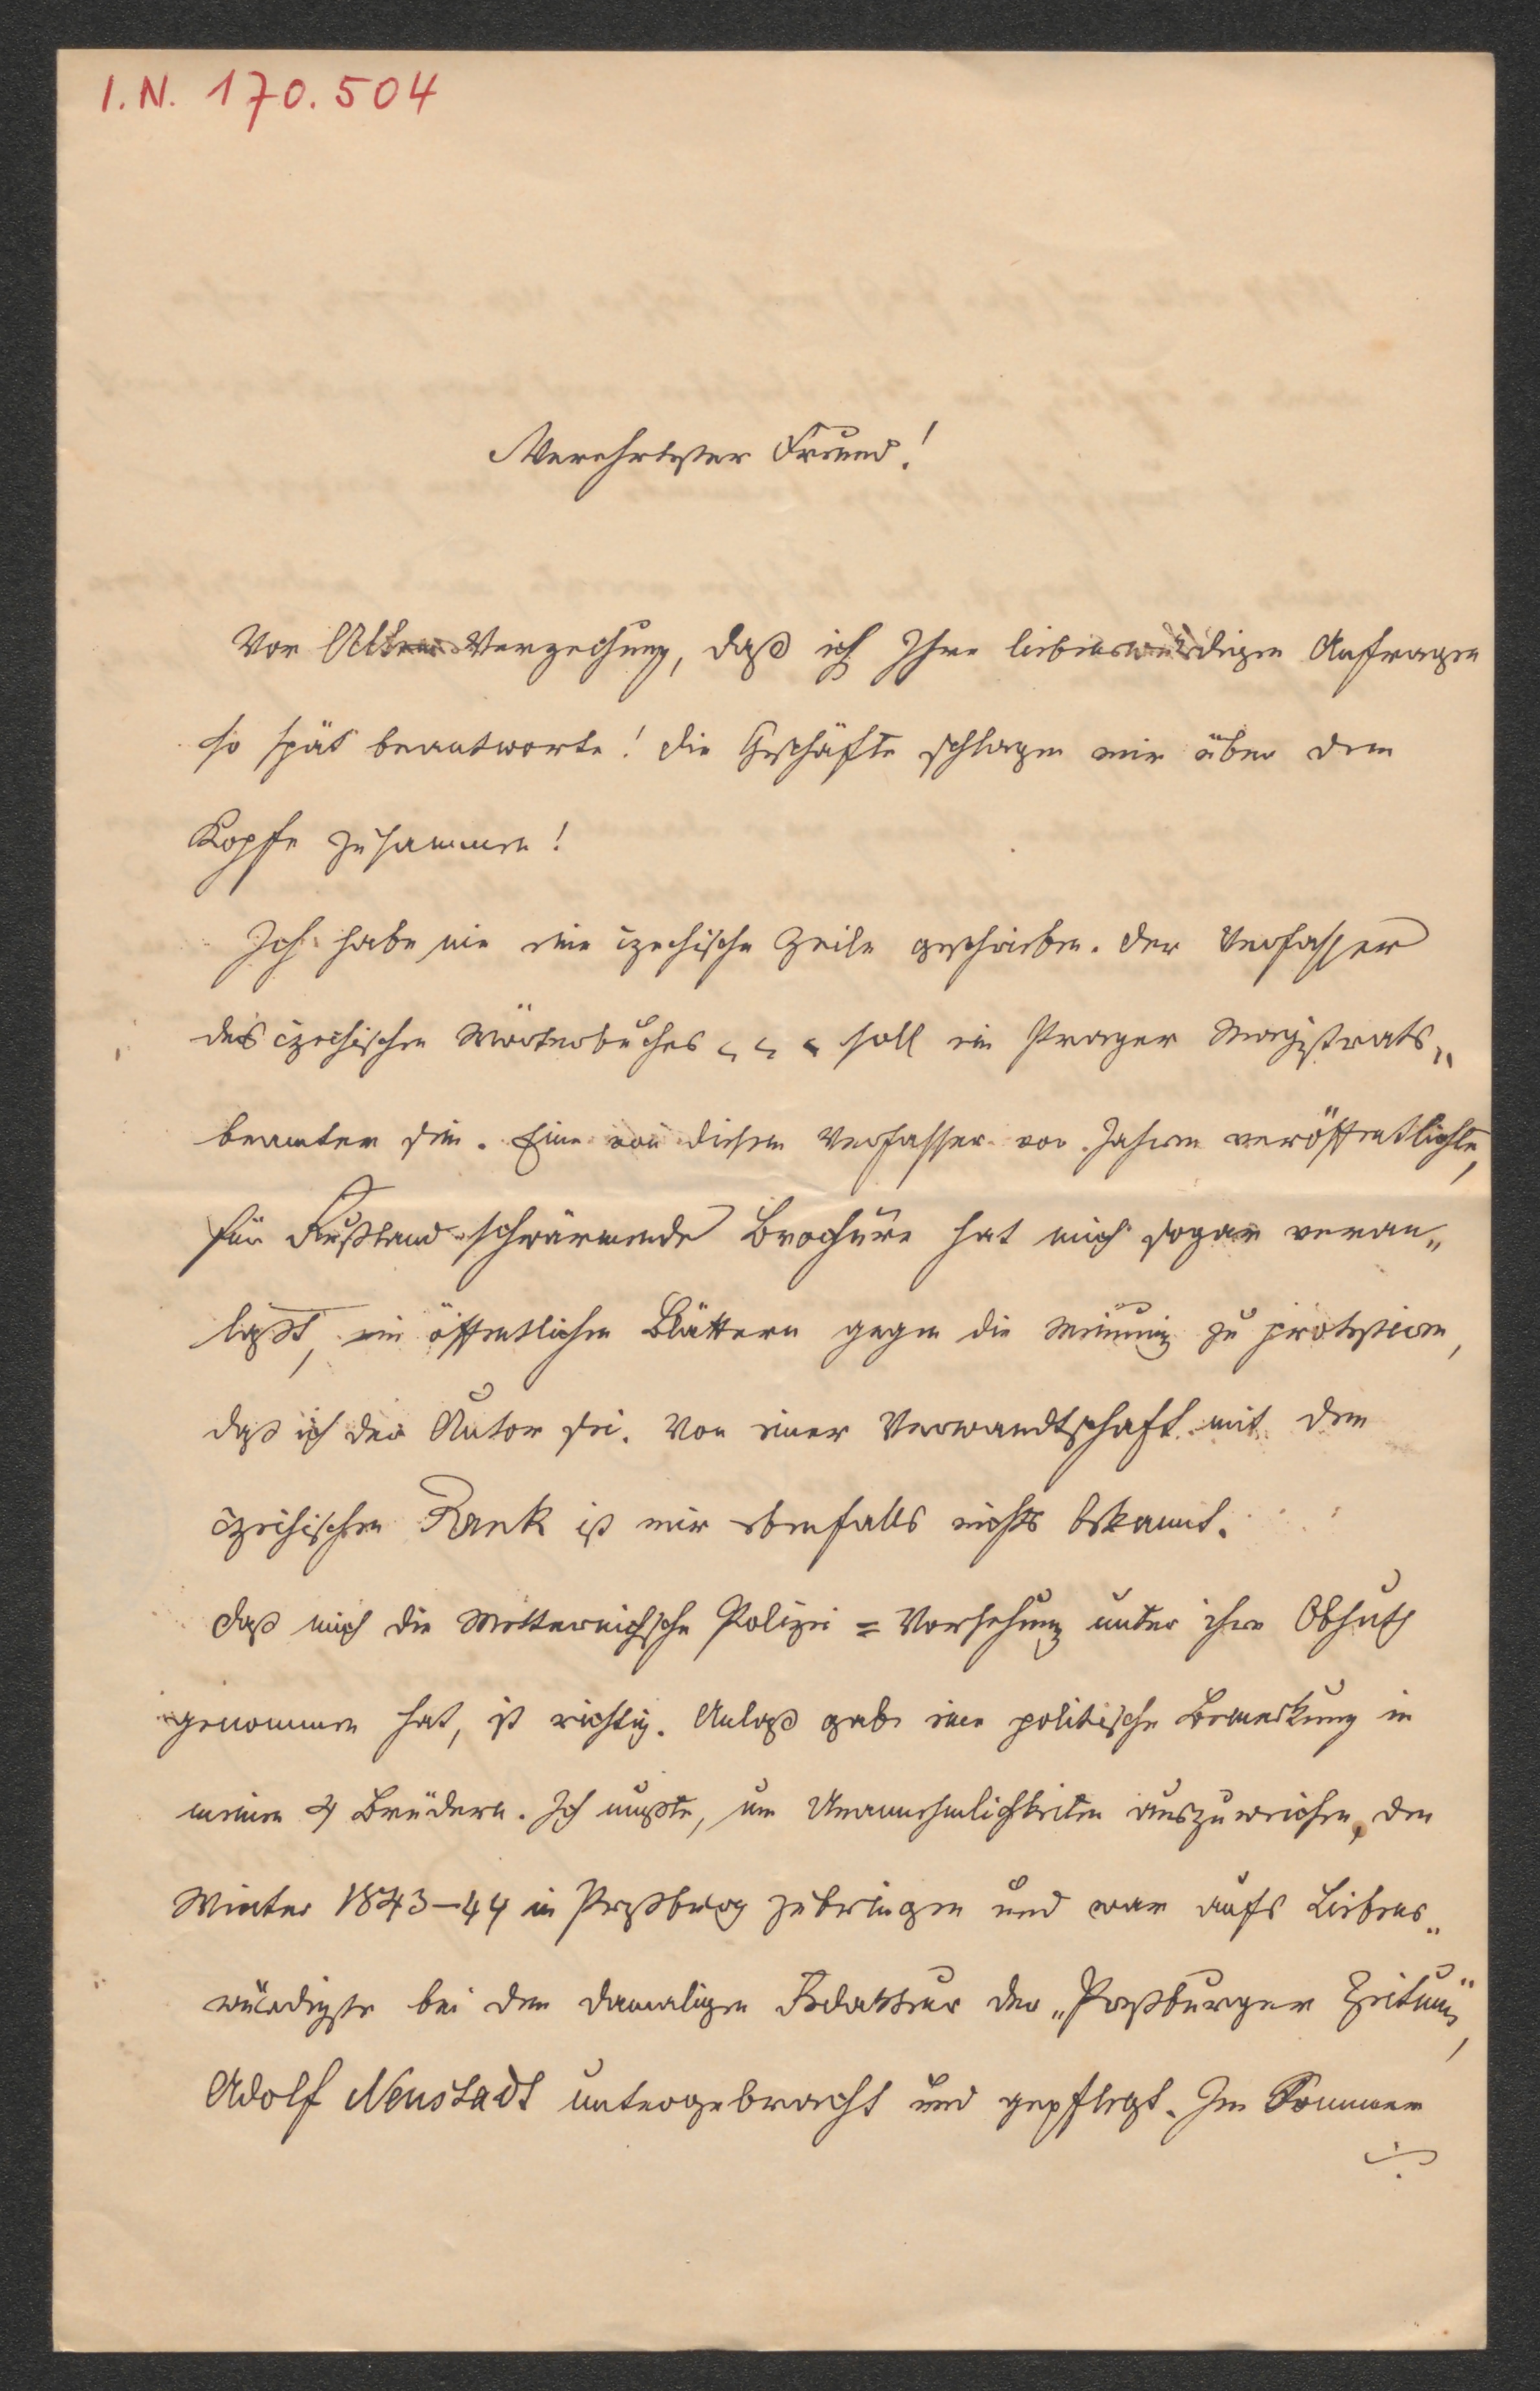 I.N. 170.504
Verehrtester Freund!
Vor Allem Verzeihung, daß ich Ihre liebenswürdigen Anfragen
so spät beantworte! Die Geschäfte schlagen mir über dem
Kopfe zusammen!
Ich habe nie eine czechische Zeile geschrieben. Der Verfasser
des czechischen Wörterbuches soll ein Prager Magistrats„
beamter sein. Eine von diesem Verfasser vor Jahren veröffentlichte,
für Rußland schwärmende Brochüre hat mich sogar veran„
laßt, in öffentlichen Blättern gegen die Meinung zu protestiren,
daß ich der Autor sei. Von einer Verwandtschaft mit dem
czechischen Rank ist mir ebenfalls nichts bekannt.
Daß mich die Metternichsche Polizei=Vorsehung unter ihre Obhuth
genommen hat, ist richtig. Anlaß gab eine politische Bemerkung in
meinen 4 Brüdern. Ich mußte, um Unannehmlichkeiten auszuweichen, den
Winter 1843–44 in Preßburg zubringen und war aufs Liebens„
würdigste bei dem damaligen Redakteur der „Preßburger Zeitung",
Adolf Neustadt untergebracht und gepflegt. Im Sommer